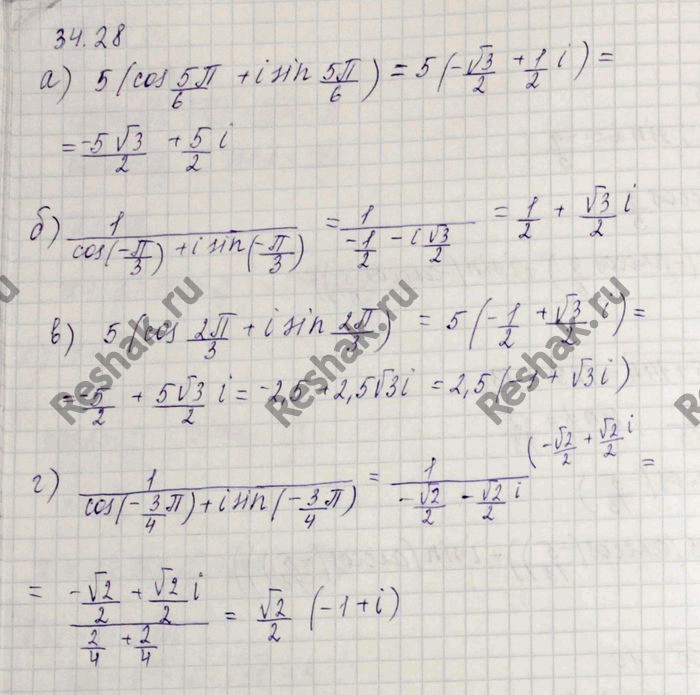 34.28
а) 5(cos 5π/6 + i sin 5π/6) = 5(-√3/2 + 1/2 i) =
= -5√3/2 + 5/2 i
б) 1/(cos(-π/3) + i sin(-π/3)) = 1/(-1/2 - i √3/2) = 1/2 + √3/2 i
в) 5(cos 2π/3 + i sin 2π/3) = 5(-1/2 + √3/2 i) =
= -5/2 + 5√3/2 i = -2,5 + 2,5√3i = 2,5(-1 + √3i)
г) 1/(cos(-3/4 π) + i sin(-3/4 π)) = 1/(-√2/2 - √2/2 i) (-√2/2 + √2/2 i =
= (-√2/2 + √2/2 i)/(2/4 + 2/4) = √2/2 (-1 + i)
Reshak.ru
Reshak.ru
Reshak.ru